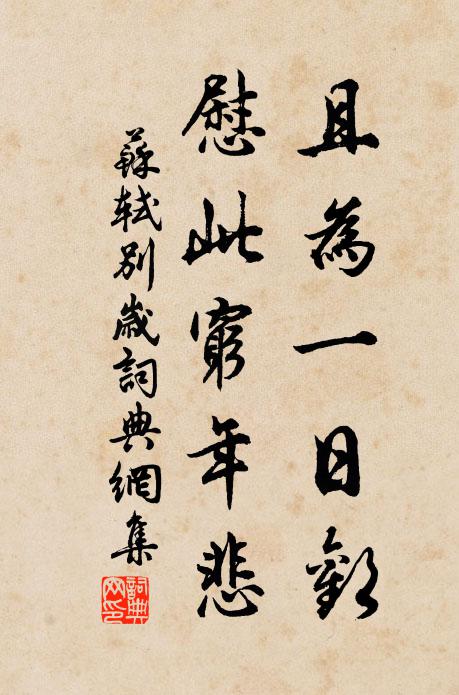 且為一日歡
慰此窮年悲
蘇軾別歲詞典網集
詞典網印